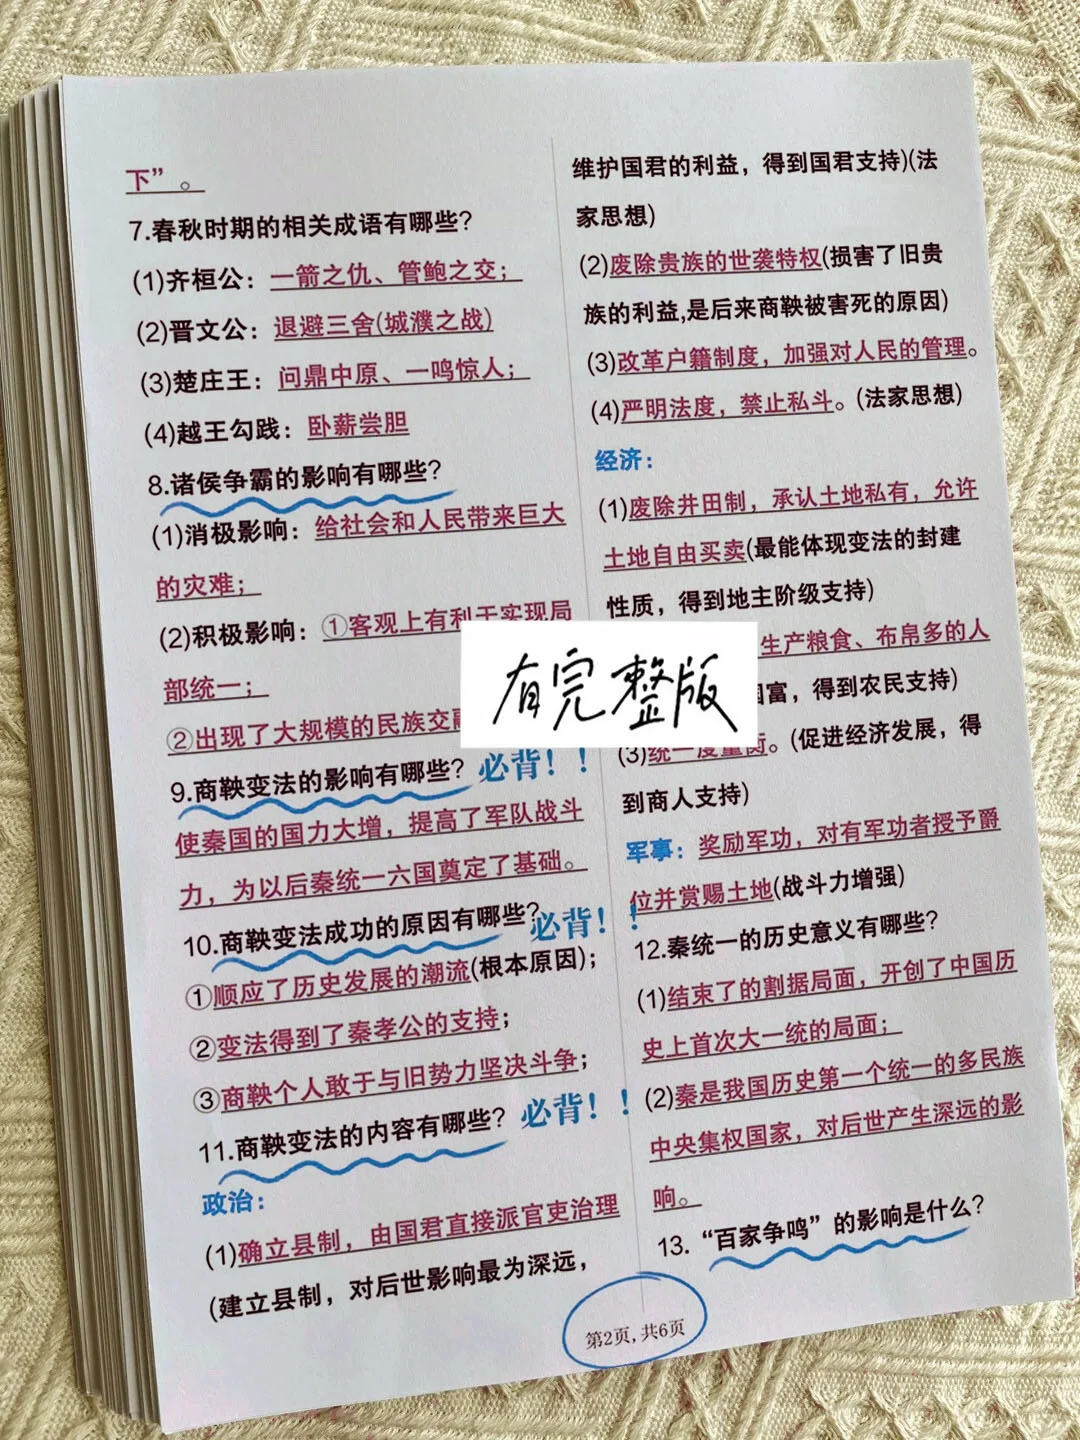 下”。
7.春秋时期的相关成语有哪些?
(1)齐桓公：一箭之仇、管鲍之交；
(2)晋文公：退避三舍(城濮之战)
(3)楚庄王：问鼎中原、一鸣惊人；
(4)越王勾践：卧薪尝胆
8.诸侯争霸的影响有哪些?
(1)消极影响：给社会和人民带来巨大
的灾难；
(2)积极影响：①客观上有利于实现局
部统一；
②出现了大规模的民族交融
9.商鞅变法的影响有哪些? 必背！！
使秦国的国力大增，提高了军队战斗
力，为以后秦统一六国奠定了基础。
10.商鞅变法成功的原因有哪些? 必背！！
①顺应了历史发展的潮流(根本原因)；
②变法得到了秦孝公的支持；
③商鞅个人敢于与旧势力坚决斗争；
11.商鞅变法的内容有哪些? 必背！！
政治：
(1)确立县制，由国君直接派官吏治理
(建立县制，对后世影响最为深远，
维护国君的利益，得到国君支持)(法
家思想)
(2)废除贵族的世袭特权(损害了旧贵
族的利益,是后来商鞅被害死的原因)
(3)改革户籍制度，加强对人民的管理。
(4)严明法度，禁止私斗。(法家思想)
经济：
(1)废除井田制，承认土地私有，允许
土地自由买卖(最能体现变法的封建
性质，得到地主阶级支持)
生产粮食、布帛多的人
国富，得到农民支持)
(3)统一度量衡。(促进经济发展，得
到商人支持)
军事：奖励军功，对有军功者授予爵
位并赏赐土地(战斗力增强)
12.秦统一的历史意义有哪些?
(1)结束了的割据局面，开创了中国历
史上首次大一统的局面；
(2)秦是我国历史第一个统一的多民族
中央集权国家，对后世产生深远的影
响。
13.“百家争鸣”的影响是什么?
有完整版
第2页,共6页